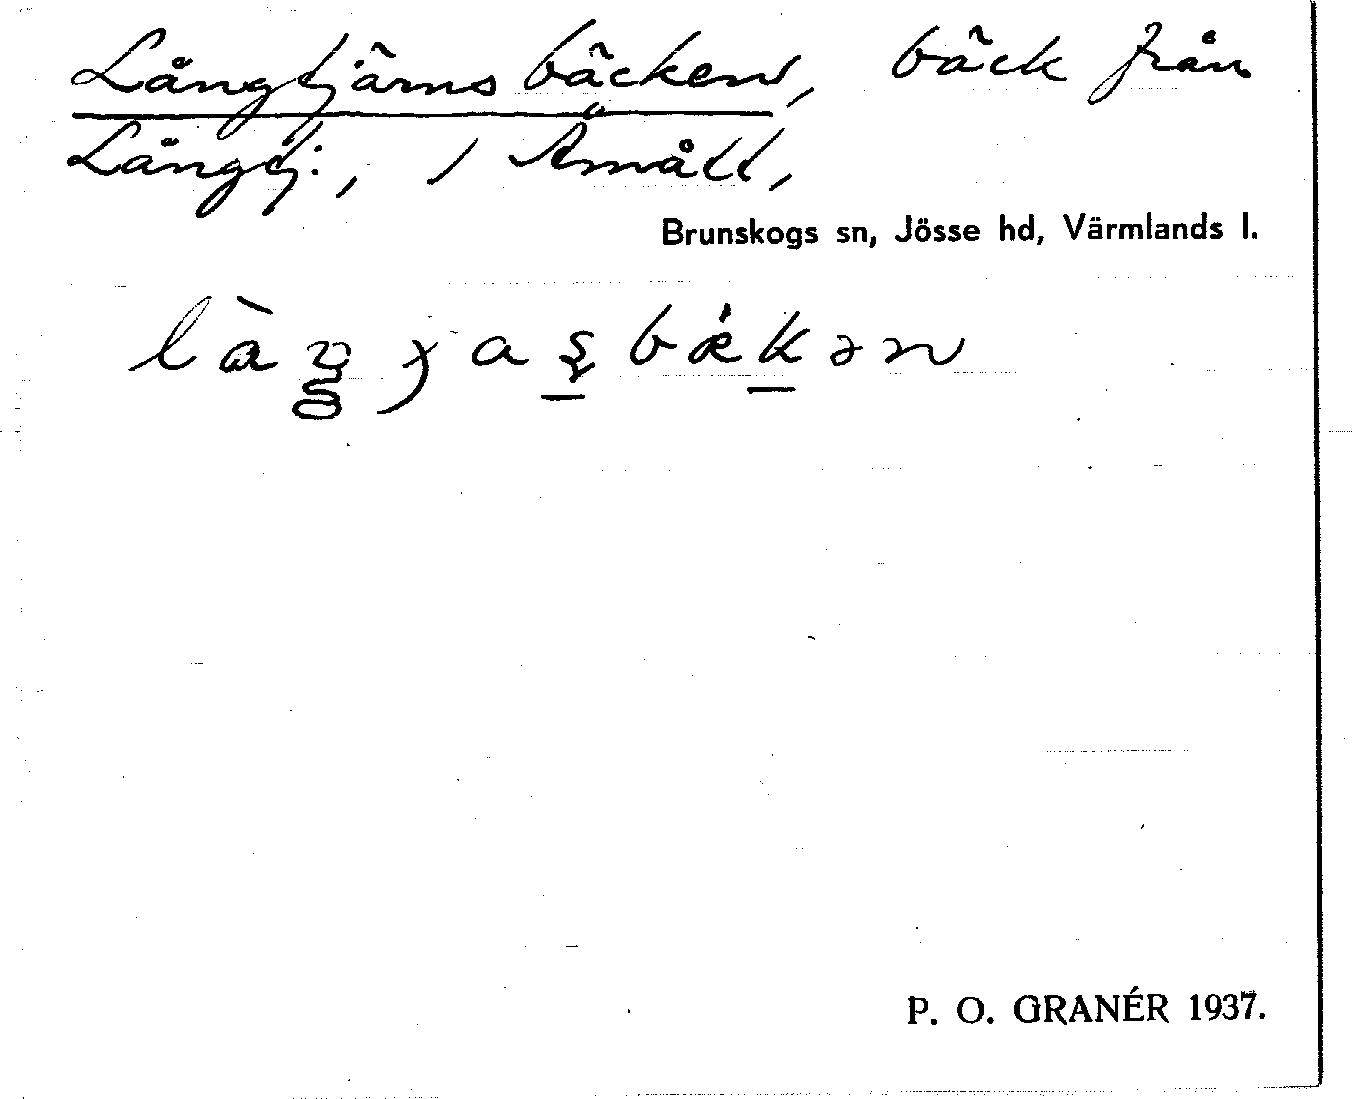 Långtjärnsbäcken, bäck från
Långtj:, i Ämått,
Brunskogs sn, Jösse hd, Värmlands l.
P. O. GRANÉR 1937.